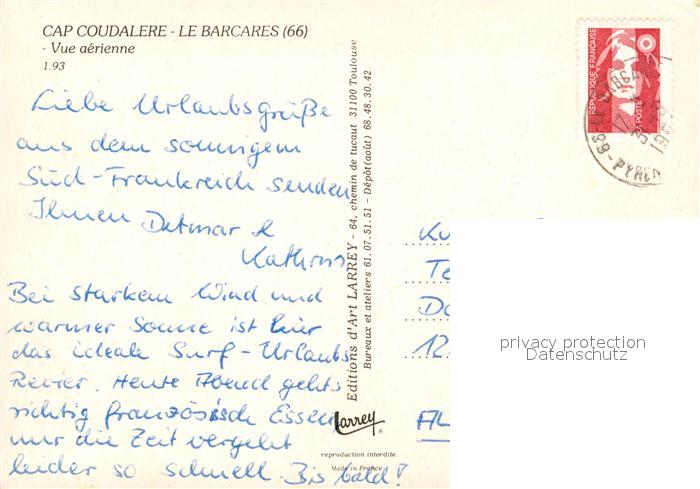 CAP COUDALERE - LE BARCARES (66)
- Vue aérienne
1.93
Liebe Urlaubsgrüße
aus dem sonnigem
Süd-Frankreich senden
Ihnen Detmar &
Kathrin
Bei starkem Wind und
warmer Sonne ist hier
das ideale Surf-Urlaubs
Revier. Heute Abend gehts
richtig französisch Essen,
nur die Zeit vergeht
leider so schnell. Bis bald!
Editions d'Art LARREY - 64, chemin de tucaut 31100 Toulouse
Bureaux et ateliers 61.07.51.51 - Dépôt (août) 68.48.30.42
Larrey
reproduction interdite
Made in France
REPUBLIQUE FRANÇAISE
LA POSTE
PYREN
12.
privacy protection
Datenschutz